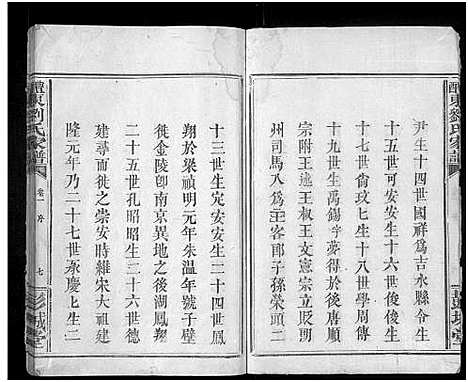 醴東劉氏家譜
尹生十四世國祥為吉水縣令生
十五世萬安生十六世俊俊生
十七世尚政七生十八世學周傳
宗附王兆萬錫字夢得於後唐順
州司馬八為王叔文憲宗立貶朗
王客郎子孫榮頭二
彭城堂
十三世生完安安生二十四世鳳
翔於梁禎明元年朱溫年號子壁
徙金陵卽南京異地之後湖鳳翔
二十五世孔昭昭生二十六世德
建時雍徙之崇安時維宋大祖建
隆元年乃二十七世承慶上生二
醴東劉氏家譜
卷一序
七
彭城堂